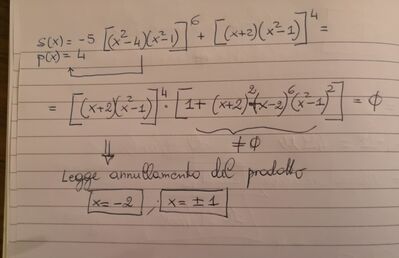 s(x) = -5 [(x²-4)(x²-1)]⁶ + [(x+2)(x²-1)]⁴ =
p(x) = 4
= [(x+2)(x²-1)]⁴ · [1 + (x+2)²(x-2)⁶(x²-1)²] = ∅
≠ ∅
⇓
Legge annullamento del prodotto
x = -2 ; x = ± 1